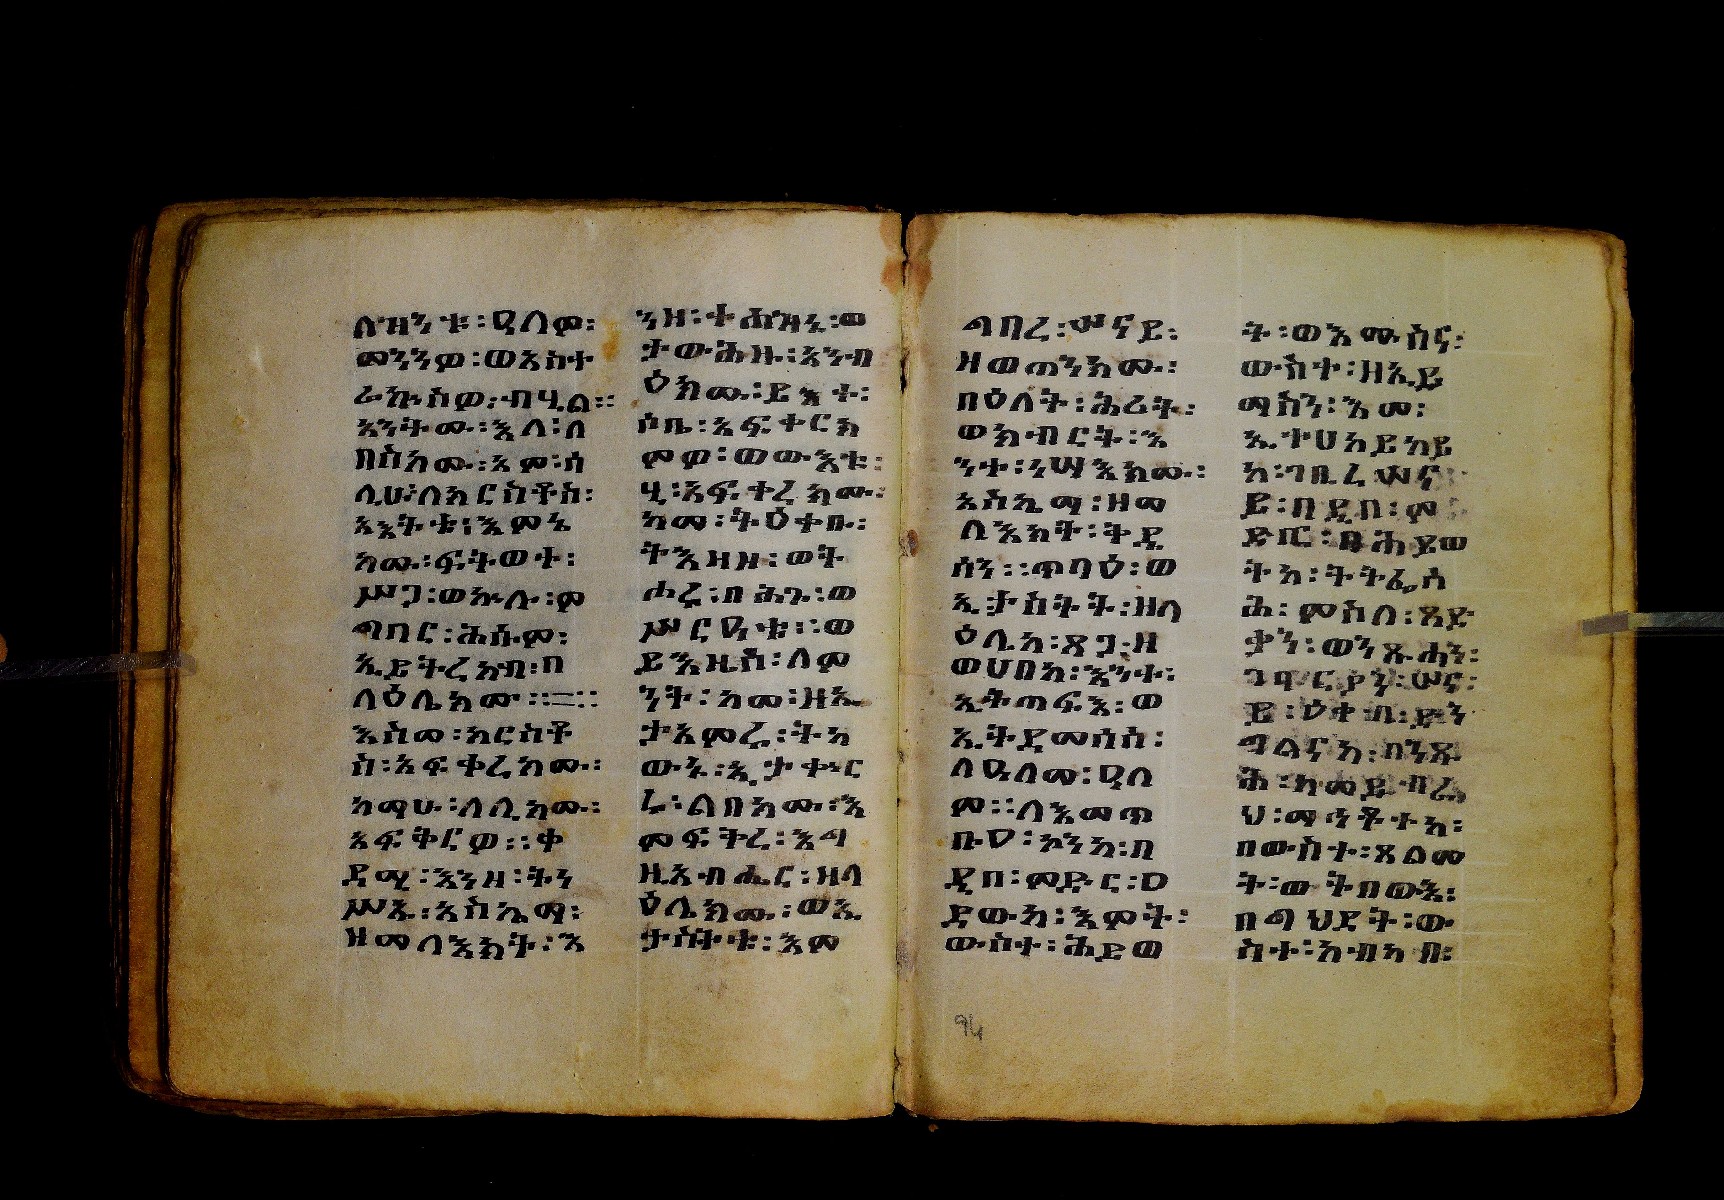 ለዝንቱ፡ዓለም፡
መንንዎ፡ወአስተ
ራኵስዎ፡ብሂል፡፡
አንትሙ፡እለ፡ለ
በስክሙ፡አምሰ
ሊሁ፡ለክርስቶስ፡
አኀትቱ፡እምኔ
ክሙ፡ፍትወተ፡
ሥጋ፡ወኵሉ፡ም
ግባር፡ሕሡም፡
ኢይትረአብ፡በ
ላዕሌክሙ፡፡=፡፡
እስመ፡ክርስቶ
ስ፡አፍቀረክሙ፡
ከማሁ፡ለሊክሙ፡
አፍቅርዎ፡፡ቀ
ዳሚ፡እንዘ፡ትን
ሥኢ፡አስኬማ፡
ዘመላእክት፡እ
ንዘ፡ተሐዝኒ፡ወ
ታውሕዙ፡አንብ
ዕክሙ፡ይእተ፡
ሶቤ፡አፍቀርክ
ምዎ፡ወውእቱ፡
ሂ፡አፍቀረክሙ፡
ከመ፡ትዕቀቡ፡
ትእዛዘ፡ወት
ሖሯ፡በሕጉ፡ወ
ሥርዓቱ፡፡ወ
ይእዜሰ፡ለም
ንት፡ከመ፡ዘኢ
ታአምሯ፡ትከ
ውኑ፡ኢታቀዝር
ራ፡ልበክሙ፡እ
መፍትረ፡እግ
ዚአብሔር፡ዘላ
ዕሌክሙ፡ወኢ
ታስትቱ፡እም
ግበረ፡ሠናይ፡
ዘወጠንክሙ፡
በዕለት፡ሕሪት፡
ወክብርት፡እ
ንተ፡ነሣእክሙ፡
አስኬማ፡ዘመ
ላእክት፡ቅዱ
ሳን፡፡ጥባዕ፡ወ
ኢታስትት፡ዘላ
ዕሌከ፡ጸጋ፡ዘ
ወሀበከ፡እንተ፡
ኢትጠፍእ፡ወ
ኢትደመሰስ፡
ለዓለመ፡ዓለ
ም፡፡ለእመጥ
ቡዕ፡አንከ፡በ
ዲበ፡ምድር፡ዐ
ደውከ፡እሞት፡
ውስተ፡ሕይወ
ት፡ወእሙስና፡
ውስተ፡ዘኢይ
ማስን፡እመ፡
ኢተሀከይከይ
ከ፡ገቢረ፡ሠና
ይ፡በዲበ፡ም
ድር፡በሕይወ
ትከ፡ትትፌሳ
ሕ፡ምስለ፡ጻድ
ቃን፡ወንጹሐን፡
ገባርያነ፡ሠና
ይ፡ዕቀብ፡ድን
ግልናከ፡በንጹ
ሕ፡ከመይብረ
ህ፡ማኅቶተከ፡
በውስተ፡ጸልመ
ት፡ውትበውእ፡
በግህደት፡ው
ስተ፡አብያብ፡